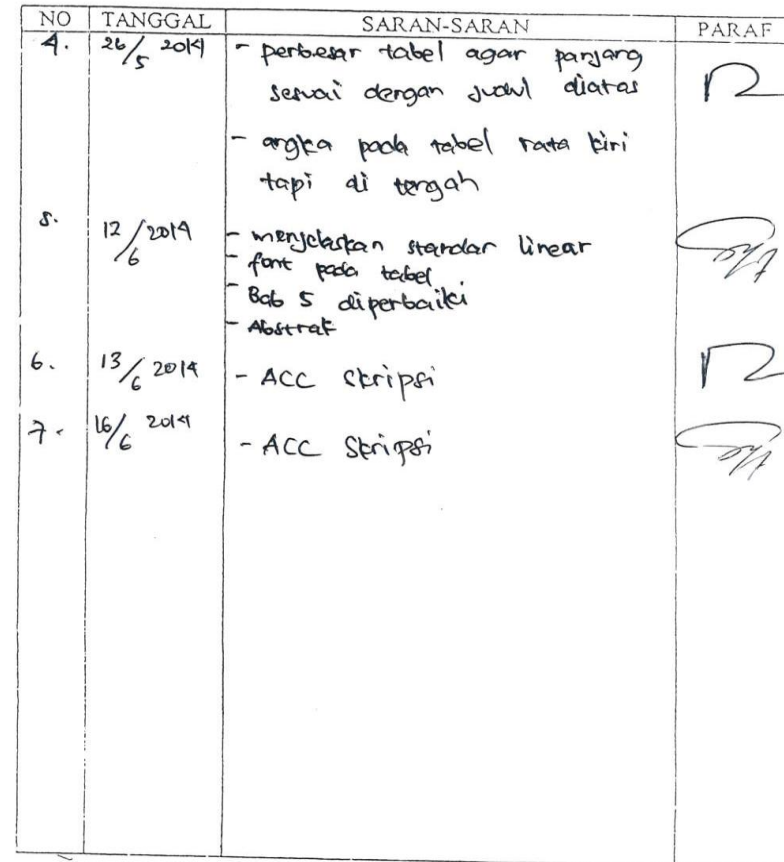 NO TANGGAL SARAN-SARAN PARAF
4. 26/5 2014 - perbesar tabel agar panjang
sesuai dengan judul diatas
- angka pada tabel rata kiri
tapi di tengah
5. 12/6 2014 - menjelaskan standar linear
- font pada tabel
- Bab 5 diperbaiki
- Abstrak
6. 13/6 2014 - ACC skripsi
7. 16/6 2014 - ACC Skripsi